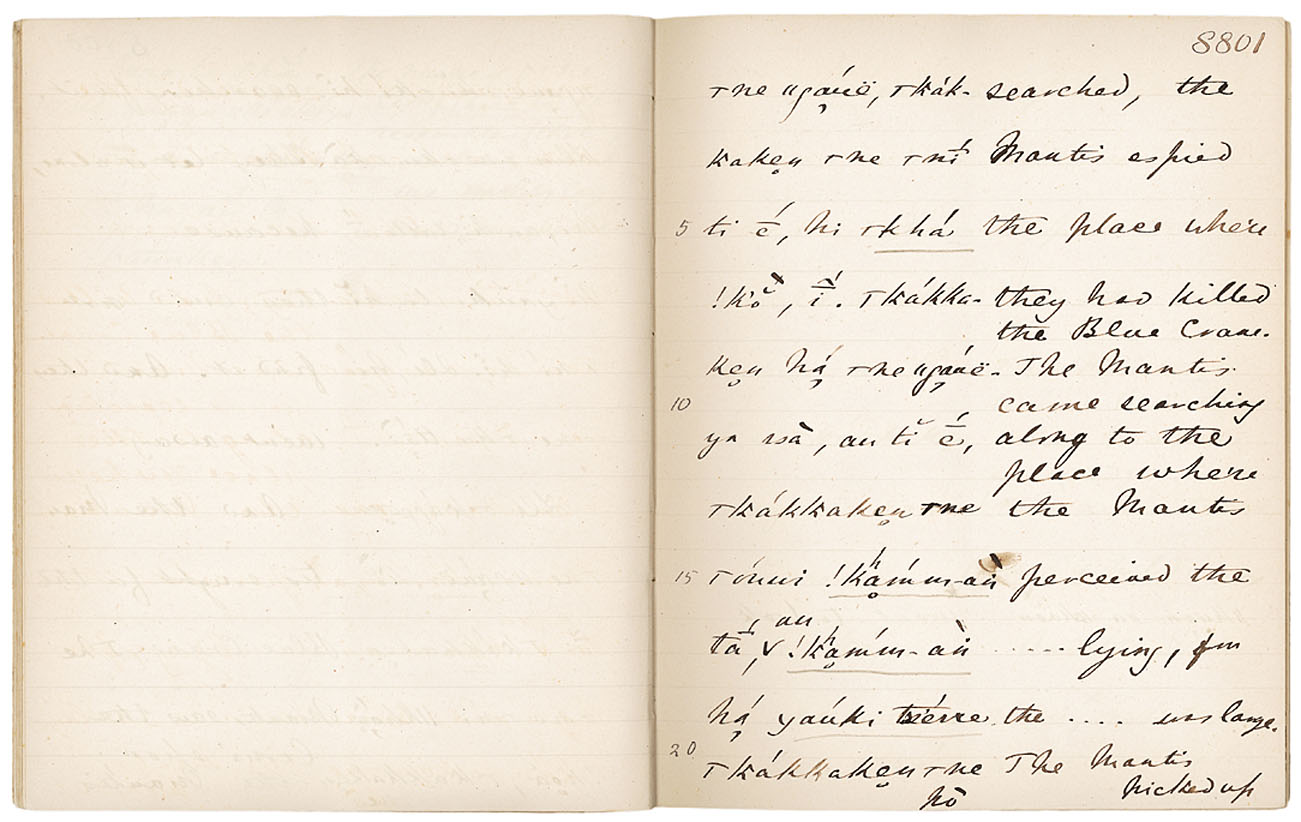 8801
ɤne ugáuë, ɤkák- searched, the
kakẹn ɤne ɤnī́ Mantis espied
5 ti ḗ, hi ɤkhá the place where
!kŏ̀, ī́. ɤkákka- they had killed
the Blue Crane.
kẹn hạ́ ɤne ugạ́uë- The Mantis
10 came searching
ya ssà, au tĭ ḗ, along to the
place where
ɤkákkakẹn ɤne the Mantis
15 perceived the
au
tā́, !kʰạ́mm-aṅ ..... lying, for
hạ́ yaúki the .... was large.
20 ɤkákkakẹn ɤne The Mantis
picked up